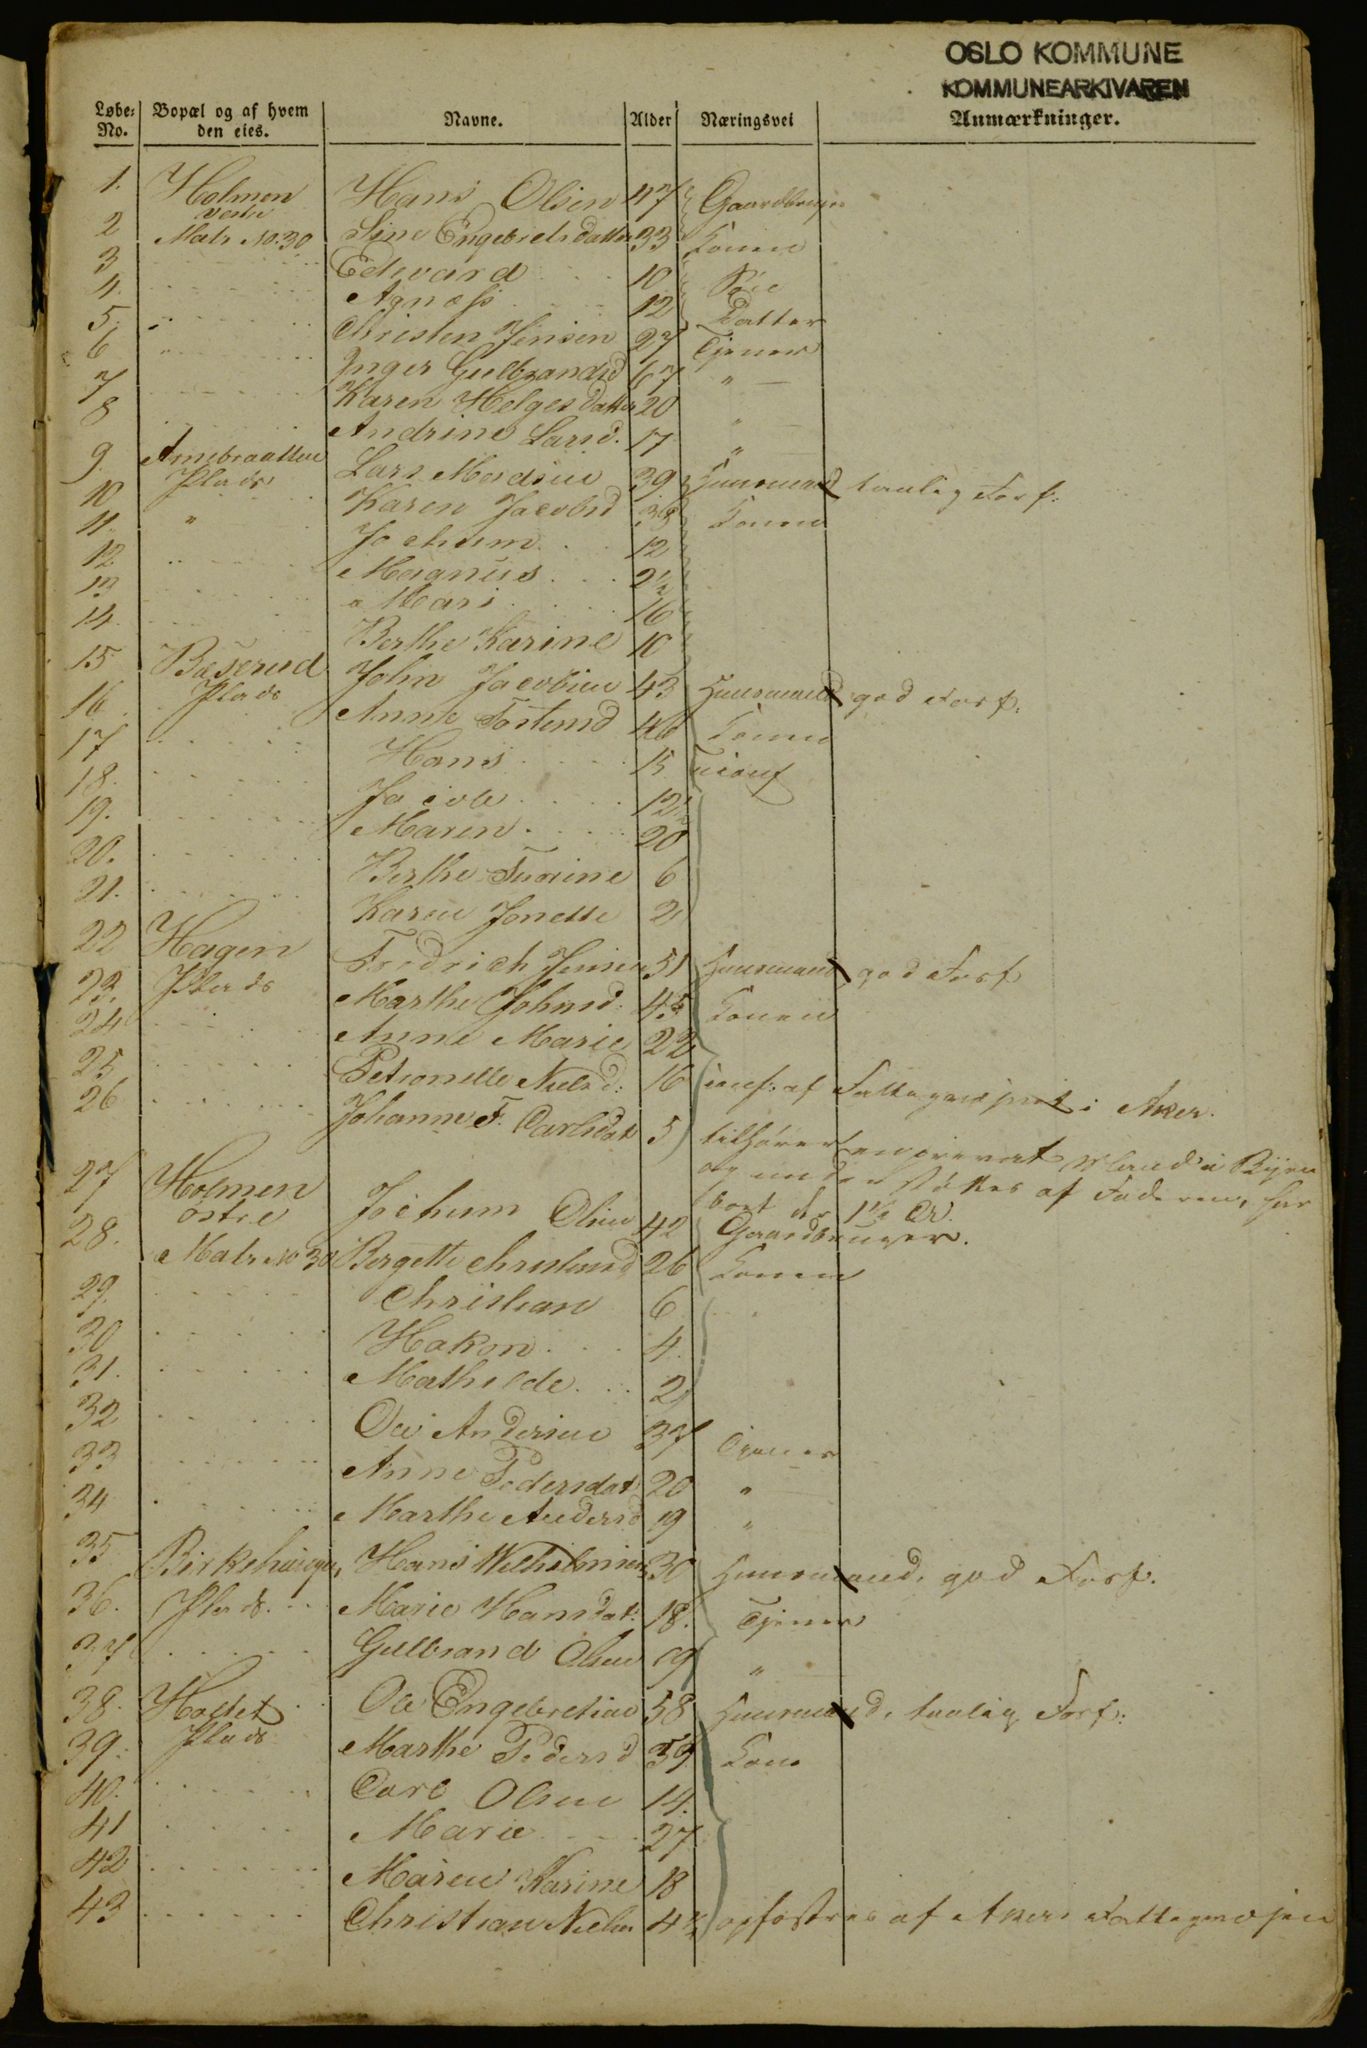 OSLO KOMMUNE
KOMMUNEARKIVAREN
Løbe-No. Bopæl og af hvem den eies. Navne. Alder Næringsvei Anmærkninger.
1. Holmen vestre Hans Olsen 47 Gaardbruger
2 Matr No. 30 Engebretsdatter 33 Konen
3 Edvard 10
4. Agness 12 Datter
5. " Christen Jensen 27 Tjener
6 " Inger Gulbrandsd 67 "
7 Karen Helgesdatter 20 "
8 Andrine Larsd. 17 "
9. Arnebraatten Plads Lars Madsen 39 Huusmand taalig Forf.
10 Karen Jacobsd 38 Konen
11. " Jochum 12
12. Magnus 2½
13 Mari 16
14. Berthe Karine 10
15 Plads John Jacobsen 43 Huusmand god Forf.
16 Anne 46 Konen
17 Hans 15
18. Jacob 12½
19. Maren 20
20. Berthe 6
21. Karen Jonette 2
22 Hagen Plads Fredrich Jensen 51 Huusmand god Forf
23. Marthe Johnsd. 45 Konen
24 Anne Marie 22
25 Petronelle Nielsd: 16 af i Aker.
26 Johanne F. Carlsdat 5 tilhører en privat Mand i Byen
og understøttes af Faderen, har
1½ Or.
27 Holmen østre Jochum Olsen 42 Gaardbruger.
28. Matr No 30 Bergette 26 Konen
29. Christian 6
30 Hakon 4.
31. Mathilde 2
32 Ole Andersen 37 Tjener
33 Anne Pedersdat 20 "
34 Marthe Andersd 19 "
35 Hans Wilhelmsen 30 Huusmand, god Forf.
36. Plads Marie Hansdat: 18. Tjener
37 Gulbrand Olsen 19 "
38. Plads Ole Engebretsen 58 Huusmand, taalig Forf:
39. Marthe Pedersd 59 Kone
40. Carl Olsen 14.
41 Marie 27
42 Maren Karine 18
43 Christian Nielsen 4 opfostres af Akers